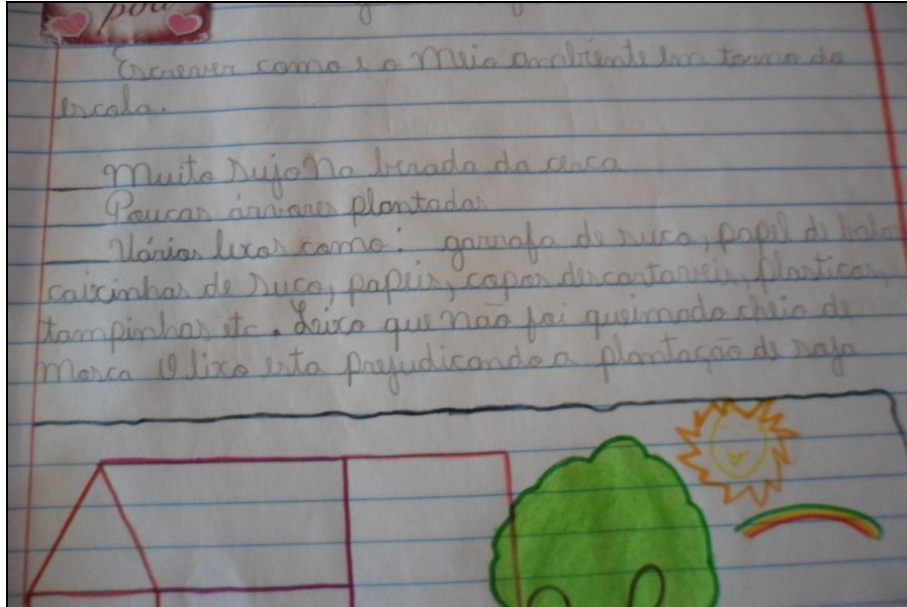 pou
Escrever como e o meio ambiente em torno da
escola.
Muito sujo na berada da cerca
Poucas árvores plantadas
Vários lixos como: garrafa de suco, papel de bala
caixinhas de suco, papeis, copos descartaveis, plasticos,
tampinhas etc. Leixo que não foi queimado cheio de
mosca O lixo esta prejudicando a plantação de soja